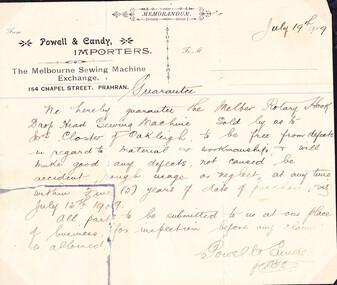 MEMORANDUM.
July 19th 1909
From
To M
Powell & Candy,
IMPORTERS.
The Melbourne Sewing Machine
Exchange.
154 CHAPEL STREET. PRAHRAN.
Guarantee
We hereby guarantee the Melba Rotary Hook
Drop Head Sewing Machine Sold by us to
Closter of Oakleigh, to be free from defects
in regard to material & workmanship & will
make good any defects, not caused be
accident, rough usage or neglect, at any time
within five (5) years of date of purchase, viz
July 12th 1909.
All parts to be submitted to us at our place
of business, for inspection before any claim
is allowed.
Powell & Candy